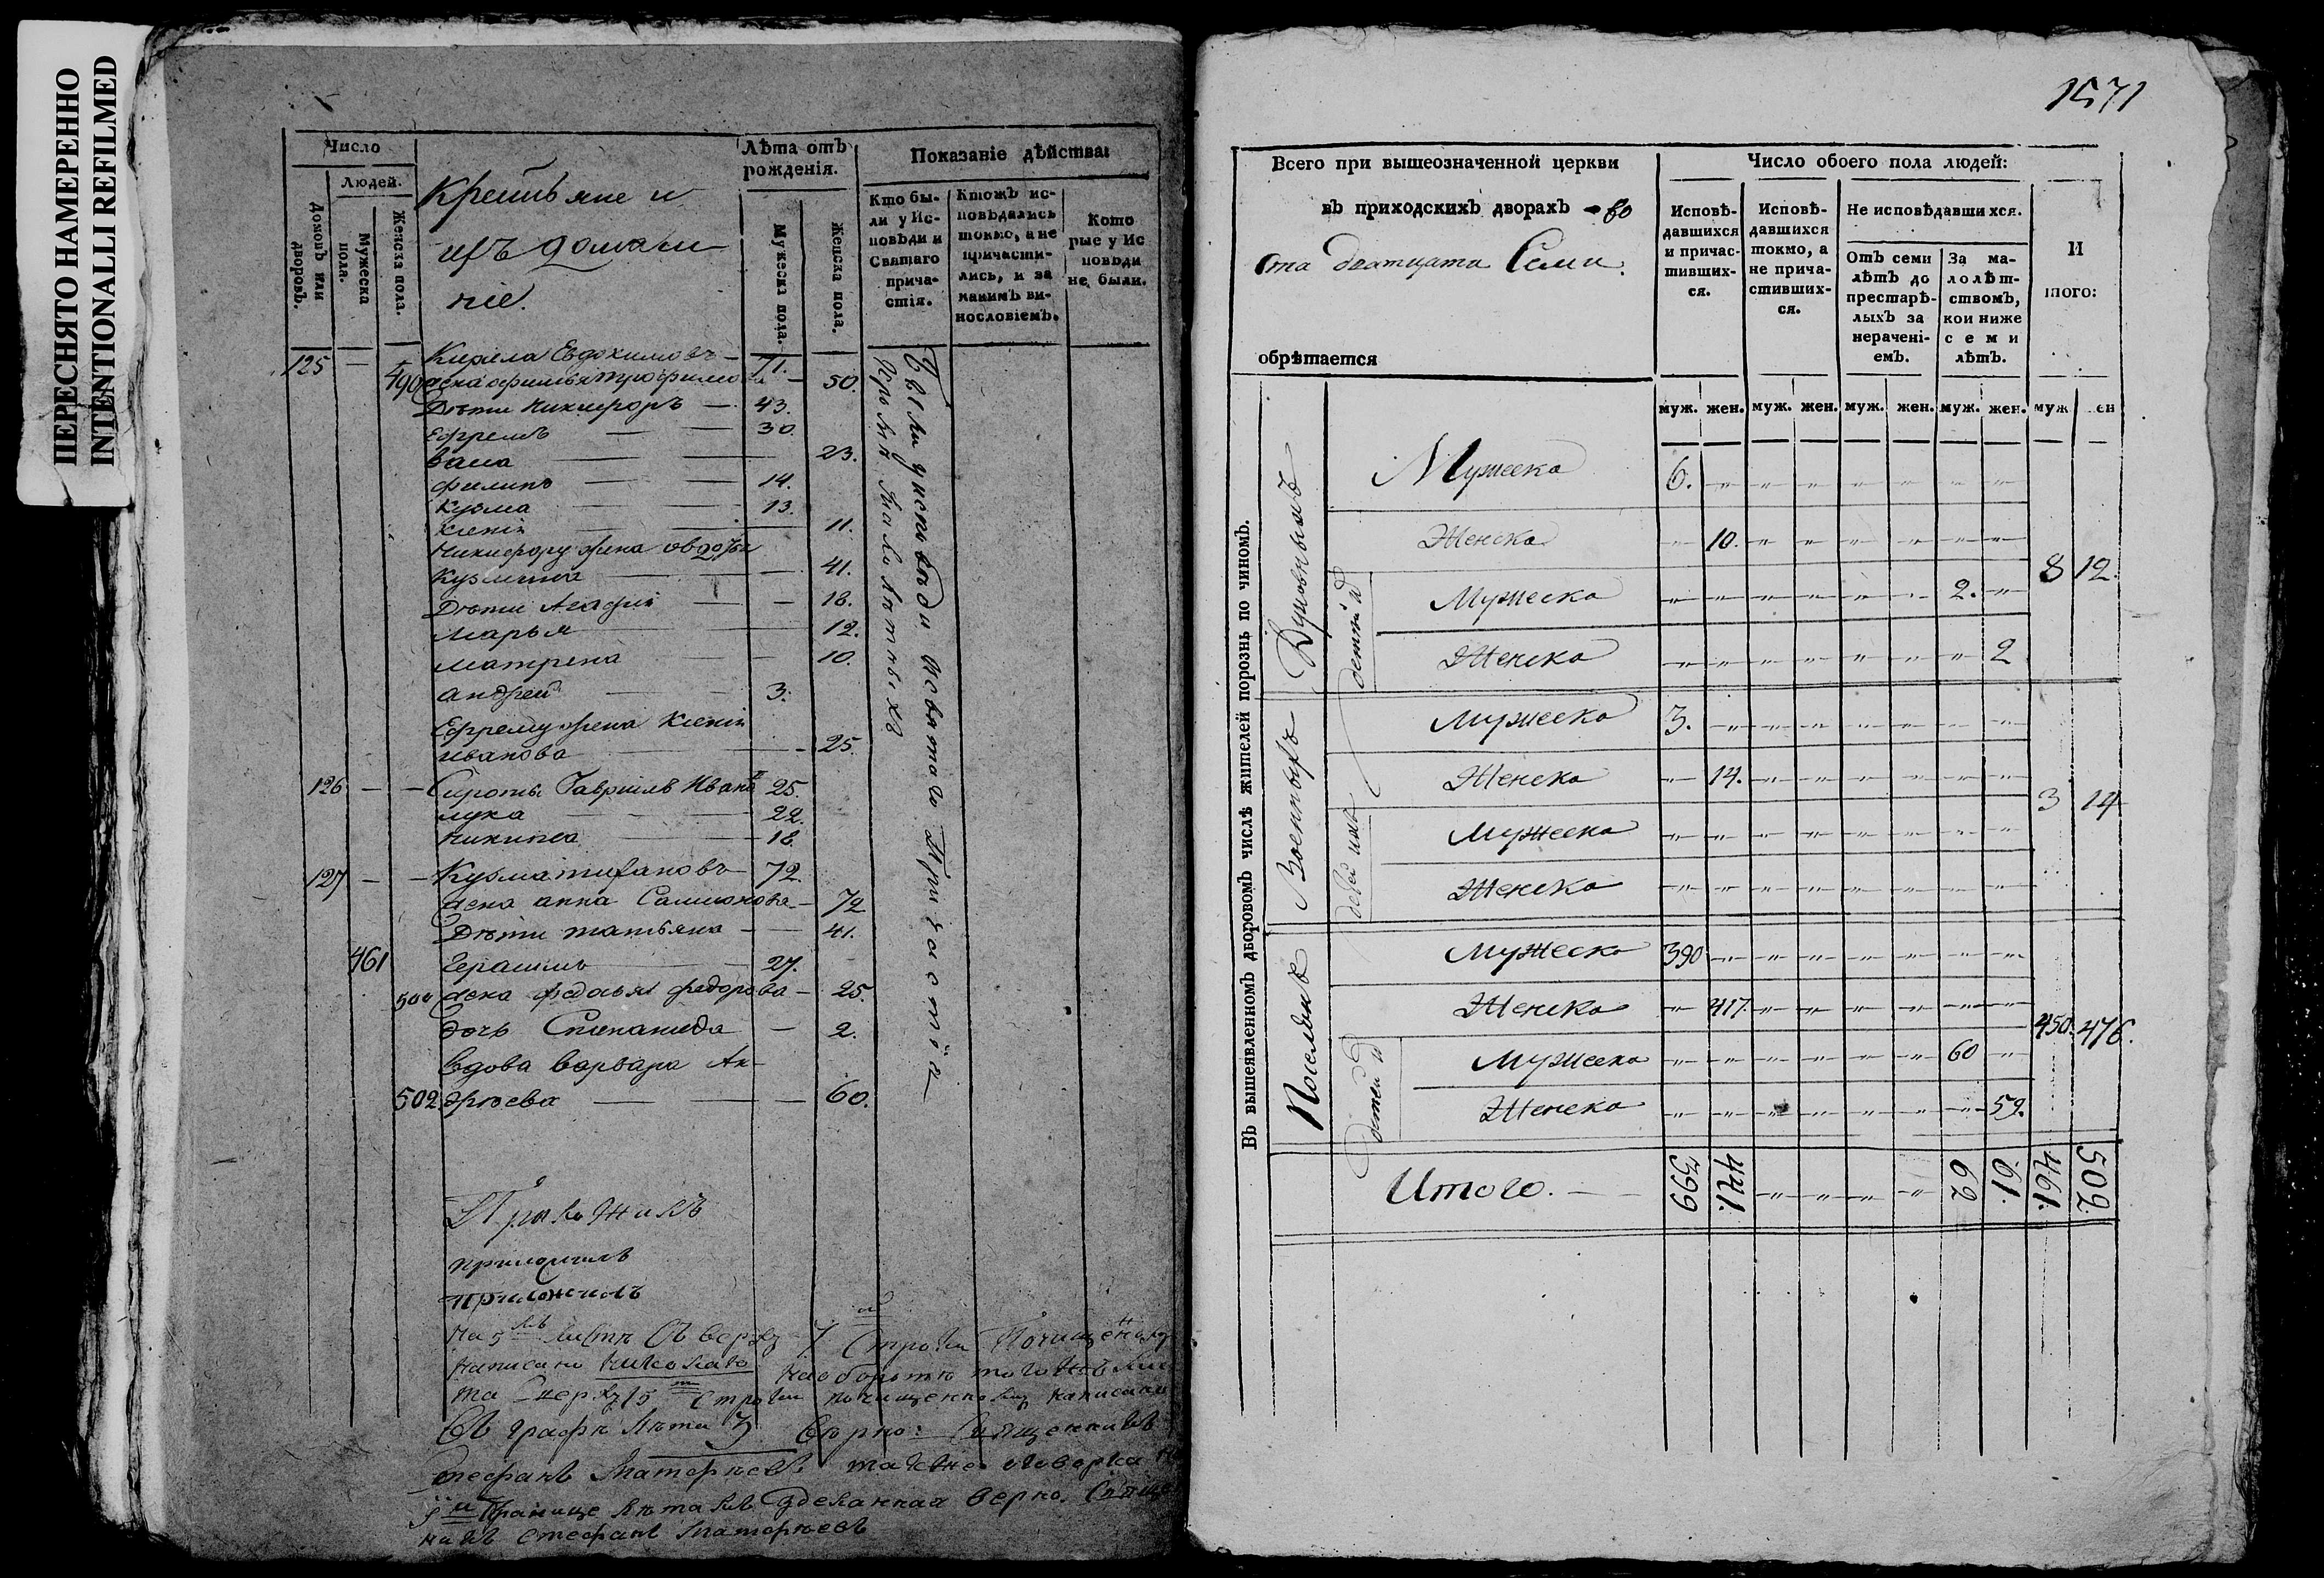 ПЕРЕСНЯТО НАМЕРЕННО
INTENTIONALLI REFILMED
Число
Людей.
Домовъ или дворовъ.
Мужеска пола.
Женска пола.
Крестьяне и
ихъ домаш
ніе.
Лѣта отъ рожденія.
Мужеска пола.
Женска пола.
Показаніе дѣйства:
Кто были у Исповѣди и Святаго причастія.
Ктожъ исповѣдались токмо, а не причастились, и за какимъ винословіемъ.
Которые у Исповѣди не были.
125 — Кирила Евдокимовъ — 71.
490 жена офимья трофимова — 50.
Дѣти Никифоръ — 43.
Ефремъ — 30.
23.
филипъ — 14.
Кузма — 13.
Ксенія — 11.
Никифору жена овдотья
Кузмина — 41.
Дѣти Агафія — 18.
Марья — 12.
матрена — 10.
андрей — 3.
Ефрему жена Ксенія
иванова — 25.
126 — — Сироты Гавріилъ Иванъ 25
лука — 22.
никита — 18.
127 — — Кузма — 72.
жена анна Самионова — 72
Дѣти татьяна — 41.
461 Герасимъ — 27.
500 жена федосья федорова — 25.
дочь Степанида — 2.
вдова варвара Ан-
502 дрѣева — 60.
Были у исповѣди и святаго Причастія
Кромѣ Малолѣтныхъ
приложилъ
приложилъ
На 5мъ листѣ Съ верху 7й Строки Почищеному
написано Николаю На оборотѣ тогожъ лис
та Сверху 15 Строки почищенному написано
Въ графѣ лѣта 3 вѣрно: Священникъ
Стефанъ Матфѣевъ такъже оговорка на
Странице лѣтамъ зделанная верно. Священ
никъ Стефанъ Матфѣевъ
1571
Всего при вышеозначенной церкви
въ приходскихъ дворахъ во
Ста дватцати Семи.
обрѣтается
Число обоего пола людей:
Исповѣдавшихся и причастившихся.
Исповѣдавшихся токмо, а не причастившихся.
Не исповѣдавшихся.
Отъ семи лѣтъ до престарѣлыхъ за нераченіемъ.
За малолѣтствомъ, кои ниже семи лѣтъ.
И
того:
муж. жен. муж. жен. муж. жен. муж. жен. муж ен
Въ вышеявленномъ дворовомъ числѣ жителей порознь по чиномъ.
Духовныхъ
Мужеска 6.
Женска 10.
детей ихъ
Мужеска 2.
Женска 2
8 12.
Военныхъ
Мужеска 3.
Женска 14.
детей ихъ
Мужеска
Женска
3 14
Поселянъ
Мужеска 390
Женска 417.
детей ихъ
Мужеска 60
Женска 59.
450. 476.
Итого. 399 441. 62 61. 461. 502.